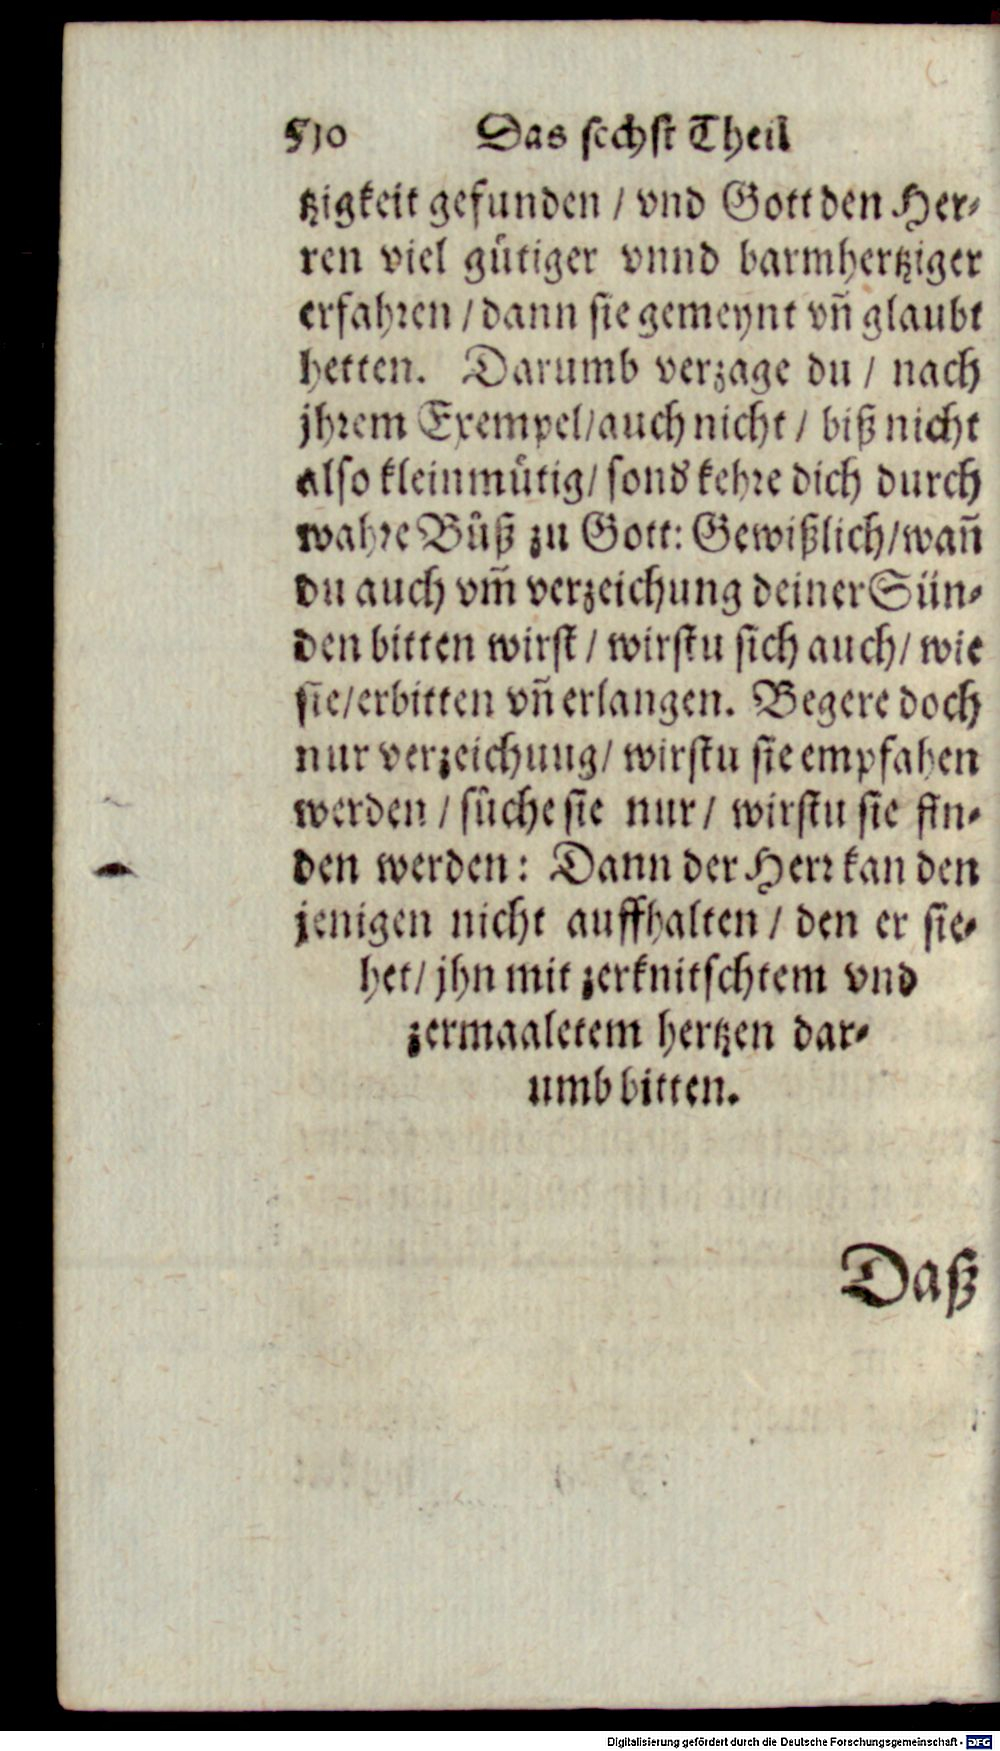 510 Das sechst Theil
tzigkeit gefunden / vnd Gott den Her-
ren viel gütiger vnnd barmhertziger
erfahren / dann sie gemeynt vñ glaubt
hetten. Darumb verzage du / nach
jhrem Exempel/auch nicht / biß nicht
also kleinmütig/ sond' kehre dich durch
wahre Bůß zu Gott: Gewißlich/wañ
du auch vm̃ verzeichung deiner Sün-
den bitten wirst / wirstu sich auch/ wie
sie/erbitten vñ erlangen. Begere doch
nur verzeichung/ wirstu sie empfahen
werden / sůche sie nur / wirstu sie fin-
den werden: Dann der Herr kan den
jenigen nicht auffhalten / den er sie-
het/ jhn mit zerknitschtem vnd
zermaaletem hertzen dar-
umb bitten.
Daß
Digitalisierung gefördert durch die Deutsche Forschungsgemeinschaft - DFG